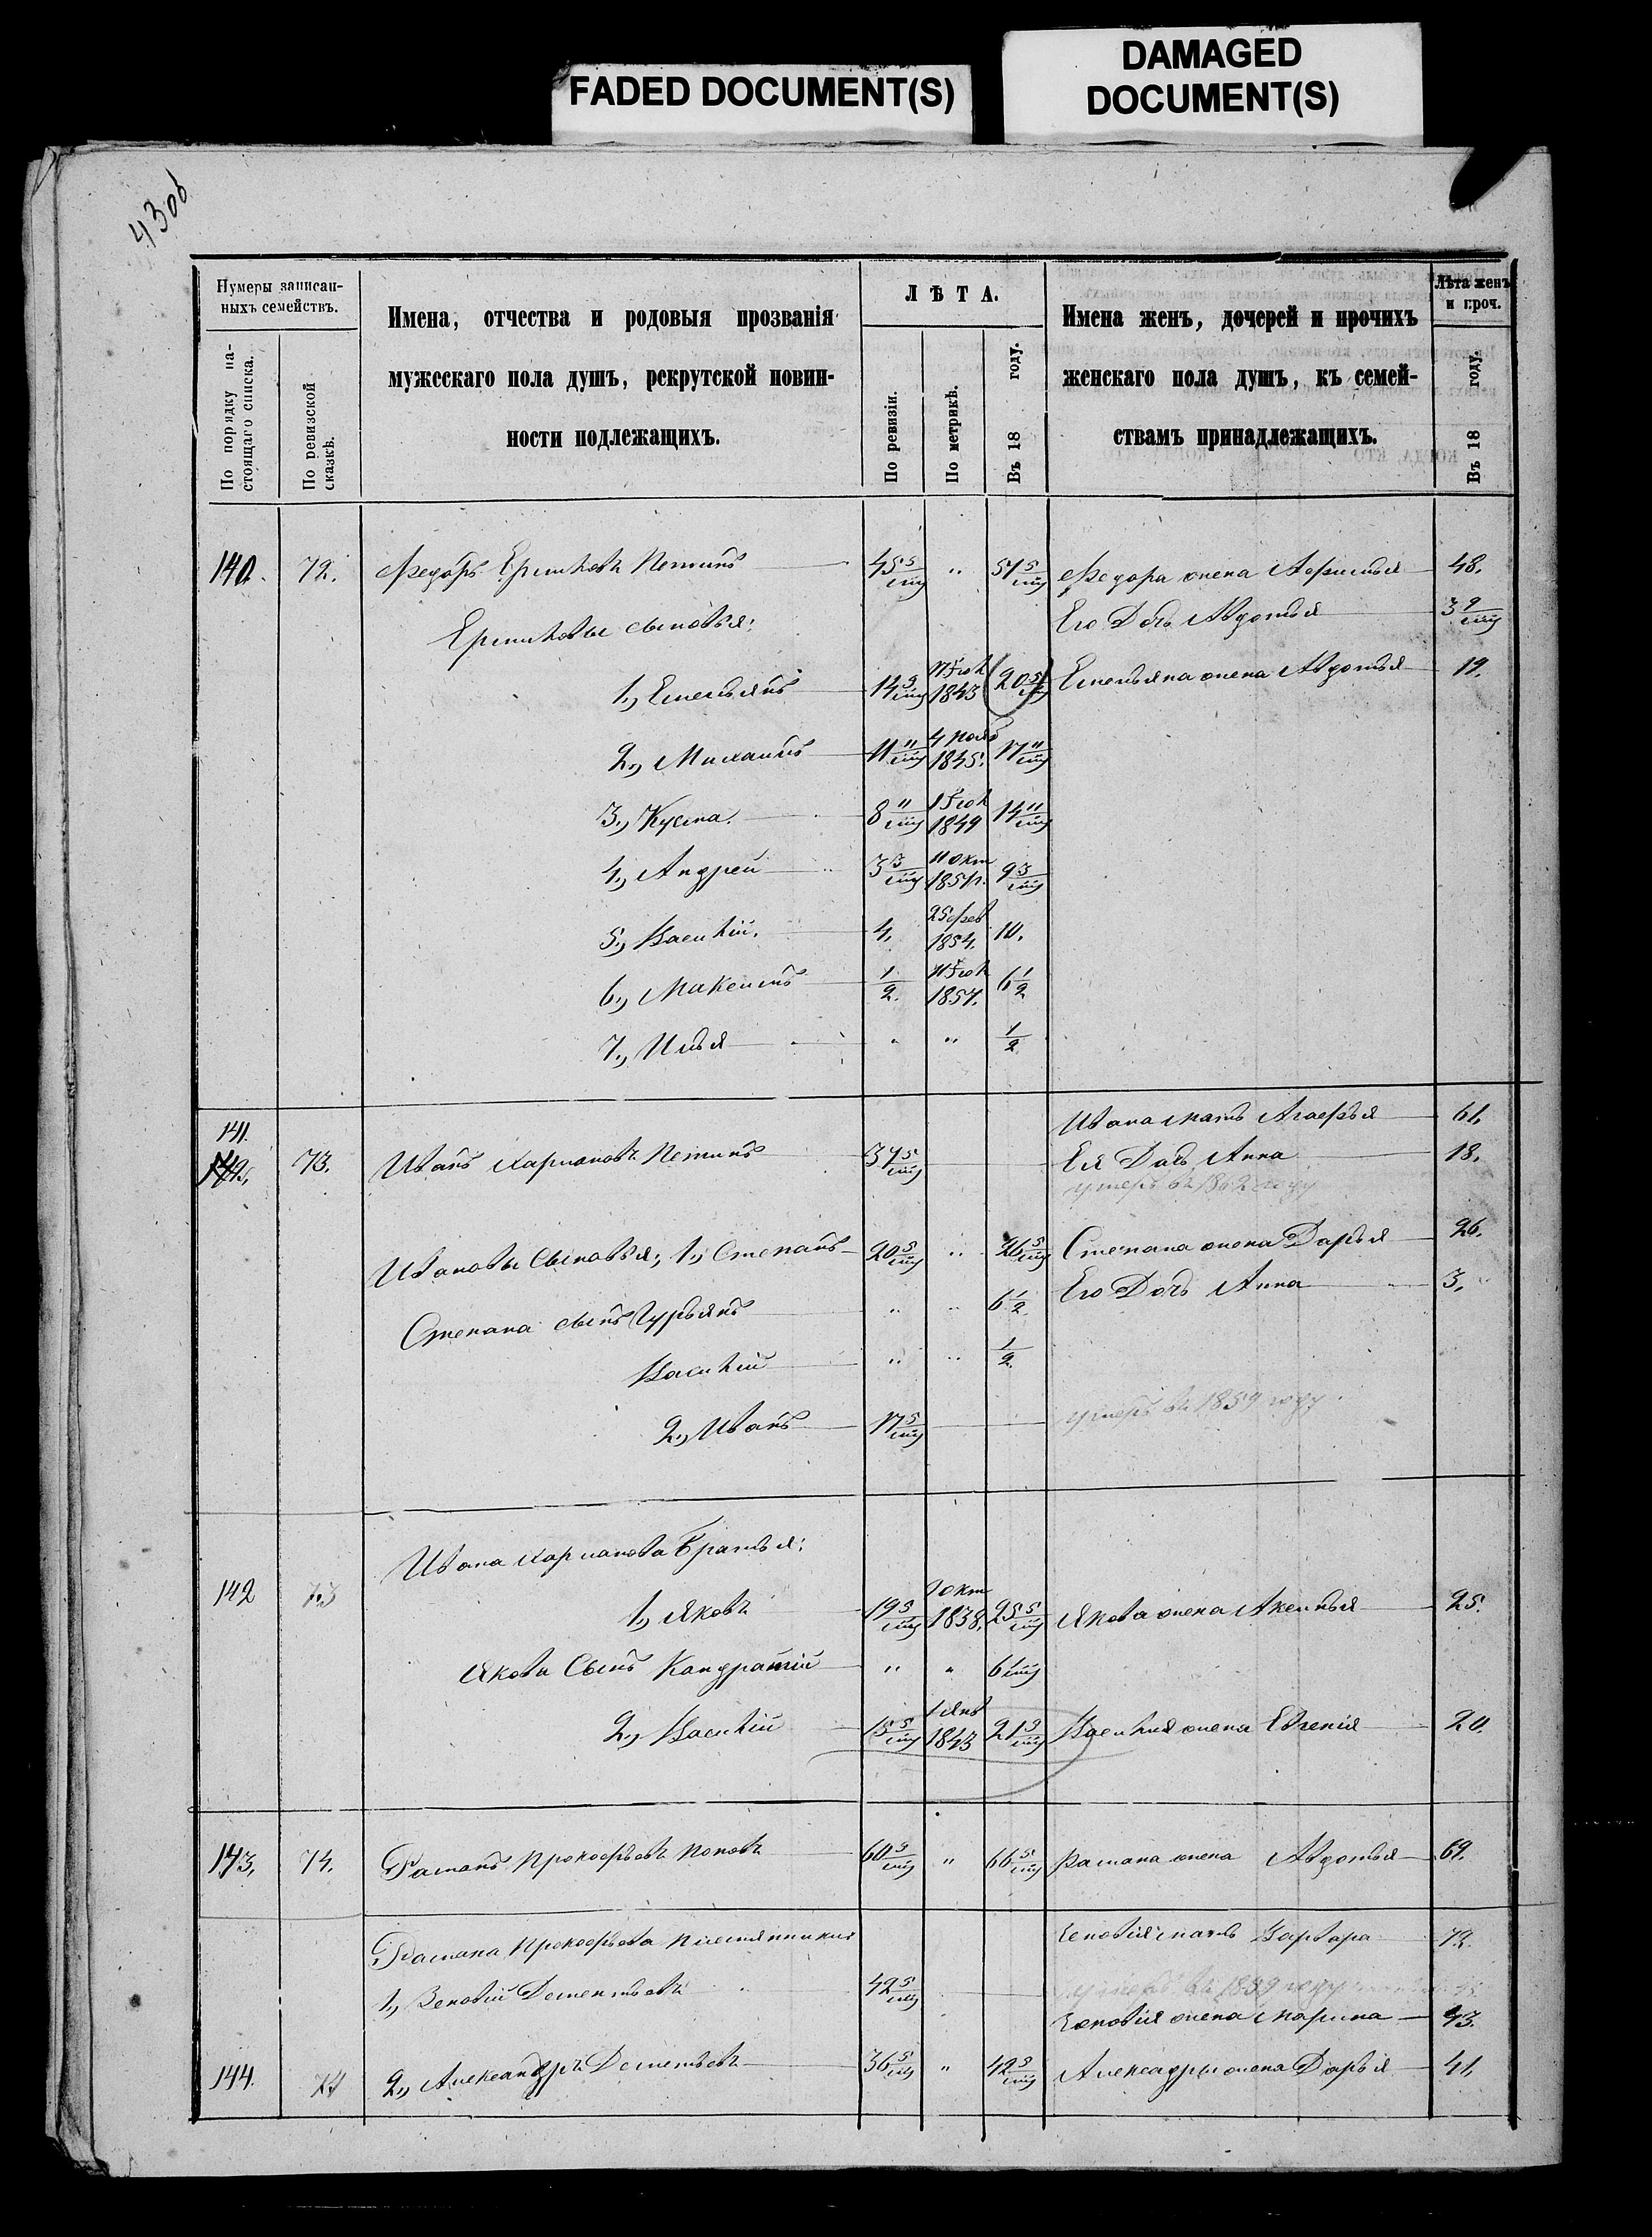 FADED DOCUMENT(S)
DAMAGED
DOCUMENT(S)
43 об
Нумеры записан-
ныхъ семействъ.
По порядку на-
стоящаго списка.
По ревизской
сказкѣ.
Имена, отчества и родовыя прозванія
мужескаго пола душъ, рекрутской повин-
ности подлежащихъ.
ЛѢТА.
По ревизіи.
По метрикѣ.
Въ 18 году.
Имена женъ, дочерей и прочихъ
женскаго пола душъ, къ семей-
ствамъ принадлежащихъ.
Лѣта женъ
и проч.
Въ 18 году.
140. 72. Федоръ Петинъ 45 5/мц " 51 5/мц Федора жена 48.
сыновья: Его Дочь Авдотья 3 9/мц
1., Емельянъ 14 9/мц 1843 20 5/мц Емельяна жена Авдотья 19.
2., Михаилъ 11 11/мц 4 нояб 1845. 17 11/мц
3., Кузма. 8 11/мц 1849 14 11/мц
4., Андрей 3 3/мц 11 окт 9 3/мц
5., Василій. 4. 25 фев 1854. 10.
6., Максимъ 1/2. 1857. 6 1/2
7., Илья " " 1/2
141. Ивана мать Агафья 61.
73. Иванъ Петинъ 37 5/мц Ея Дочь Анна 18.
умеръ въ 1862 году
Ивановы Сыновья; 1., Степанъ 20 5/мц " 26 5/мц Степана жена Дарья 26.
Степана сынъ Гурьянъ " " 6 1/2. Его Дочь Анна 3.
Василій " " 1/2.
2., Иванъ 17 5/мц умеръ въ 1859 году.
Ивана Братья:
142 73 1., Яковъ 19 5/мц окт 1838. 25 5/мц Якова жена Аксинья 25.
Якова Сынъ Кондратій " "
2., Василій 15 5/мц 1 янв 1843 Василія жена Евгенія 20.
143. 74. Раманъ Прокофьевъ Поповъ " Рамана жена Авдотья 69.
Рамана Прокофьева племянники Зеновія мать Варвара 72.
1., Зеновій Дементьевъ 42 5/мц умеръ въ 1859 году
Зеновія жена Марина 43.
144. 74 2., Александръ Дементьевъ 36 5/мц " 42 5/мц жена Дарья 41.